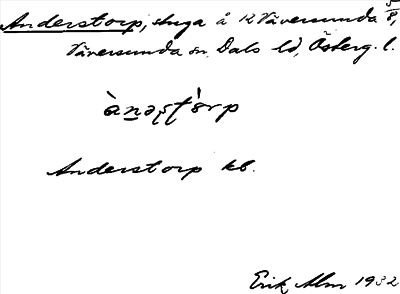 Anderstorp, stuga å K Väversunda 5/8,
Väversunda sn, Dals hd, Österg. l.
ànəʂʈòrp
Anderstorp kb.
Erik Alm 1932